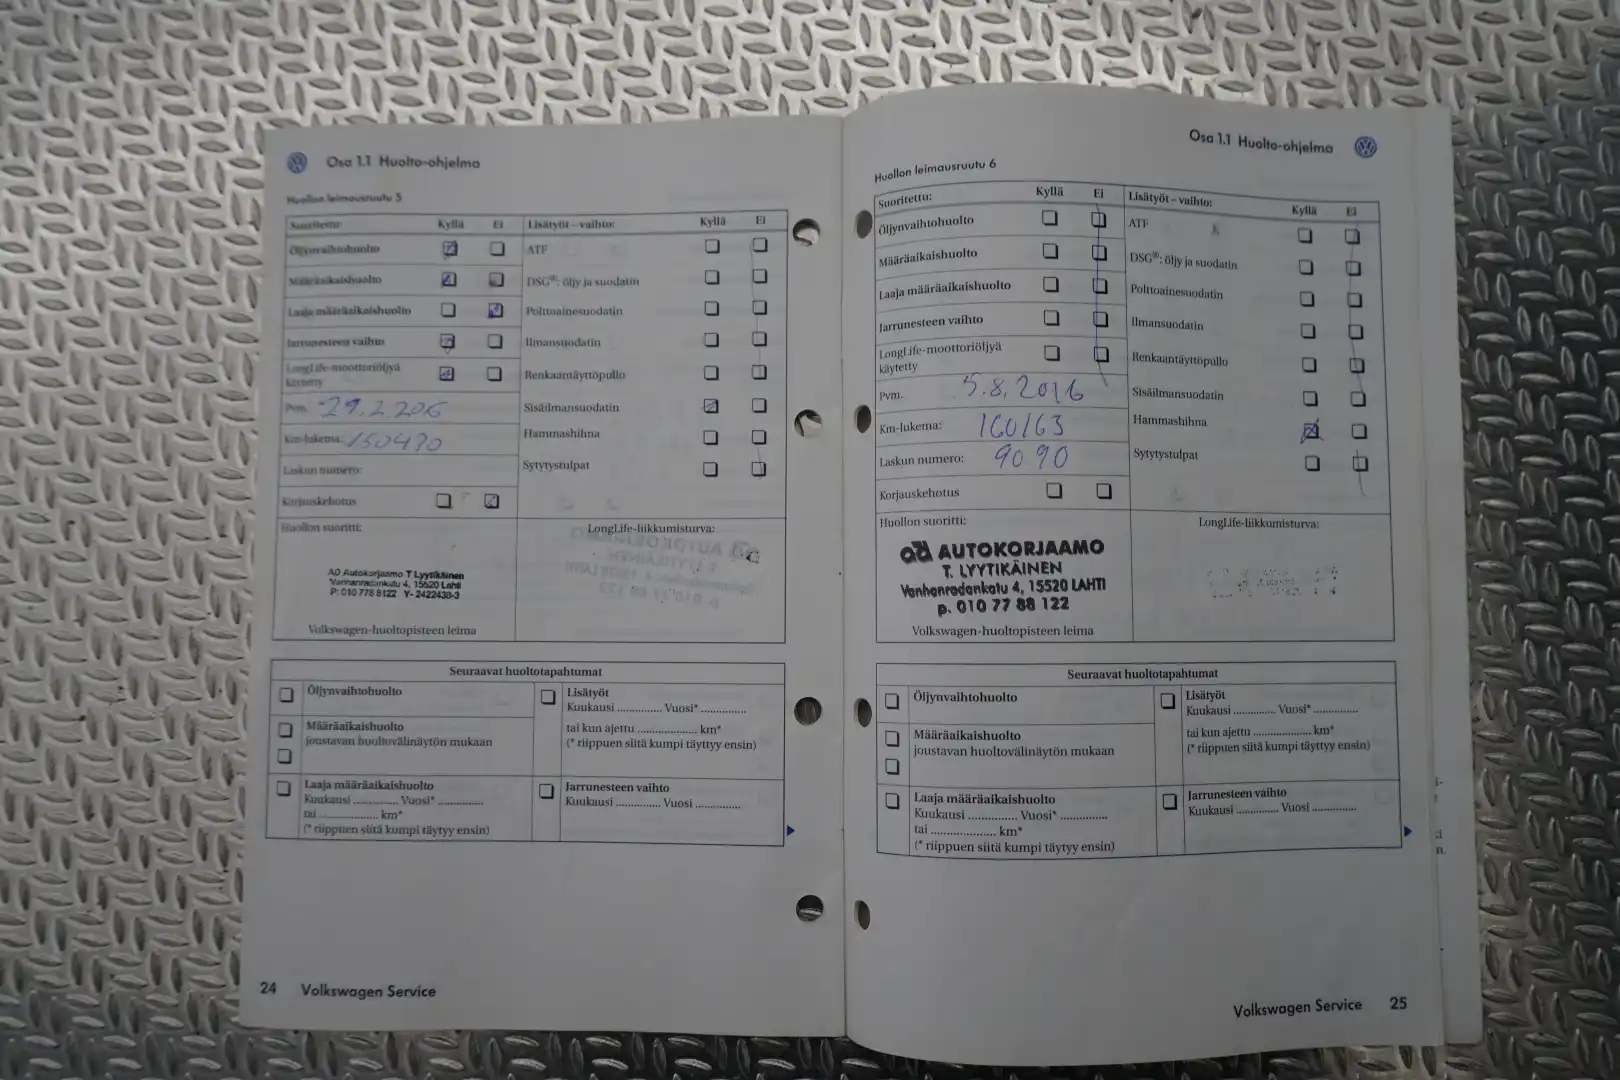 Osa 1.1 Huolto-ohjelma
Huollon leimausruutu 5
Suoritettu: Kyllä Ei Lisätyöt – vaihto: Kyllä Ei
Öljynvaihtohuolto ATF
Määräaikaishuolto DSG®: öljy ja suodatin
Laaja määräaikaishuolto Polttoainesuodatin
Jarrunesteen vaihto Ilmansuodatin
LongLife-moottoriöljyä
käytetty Renkaantäyttöpullo
Pvm. 29.2.206 Sisäilmansuodatin
Km-lukema: 150470 Hammashihna
Laskun numero: Sytytystulpat
Korjauskehotus
Huollon suoritti: LongLife-liikkumisturva:
AD Autokorjaamo T Lyytikäinen
Vanhanradankatu 4, 15520 Lahti
P: 010 778 8122 Y- 2422438-3
Volkswagen-huoltopisteen leima
Seuraavat huoltotapahtumat
Öljynvaihtohuolto Lisätyöt
Kuukausi .............. Vuosi* ..............
Määräaikaishuolto tai kun ajettu ................... km*
joustavan huoltovälinäytön mukaan (* riippuen siitä kumpi täyttyy ensin)
Laaja määräaikaishuolto Jarrunesteen vaihto
Kuukausi .............. Vuosi* .............. Kuukausi .............. Vuosi ..............
tai ................... km*
(* riippuen siitä kumpi täytyy ensin)
24 Volkswagen Service
Osa 1.1 Huolto-ohjelma
Huollon leimausruutu 6
Suoritettu: Kyllä Ei Lisätyöt – vaihto: Kyllä Ei
Öljynvaihtohuolto ATF
Määräaikaishuolto DSG®: öljy ja suodatin
Laaja määräaikaishuolto Polttoainesuodatin
Jarrunesteen vaihto Ilmansuodatin
LongLife-moottoriöljyä
käytetty Renkaantäyttöpullo
Pvm. 5.8.2016 Sisäilmansuodatin
Km-lukema: 160163 Hammashihna
Laskun numero: 9090 Sytytystulpat
Korjauskehotus
Huollon suoritti: LongLife-liikkumisturva:
ad AUTOKORJAAMO
T. LYYTIKÄINEN
Vanhanradankatu 4, 15520 LAHTI
p. 010 77 88 122
Volkswagen-huoltopisteen leima
Seuraavat huoltotapahtumat
Öljynvaihtohuolto Lisätyöt
Kuukausi .............. Vuosi* ..............
Määräaikaishuolto tai kun ajettu ................... km*
joustavan huoltovälinäytön mukaan (* riippuen siitä kumpi täyttyy ensin)
Laaja määräaikaishuolto Jarrunesteen vaihto
Kuukausi .............. Vuosi* .............. Kuukausi .............. Vuosi ..............
tai ................... km*
(* riippuen siitä kumpi täytyy ensin)
Volkswagen Service 25